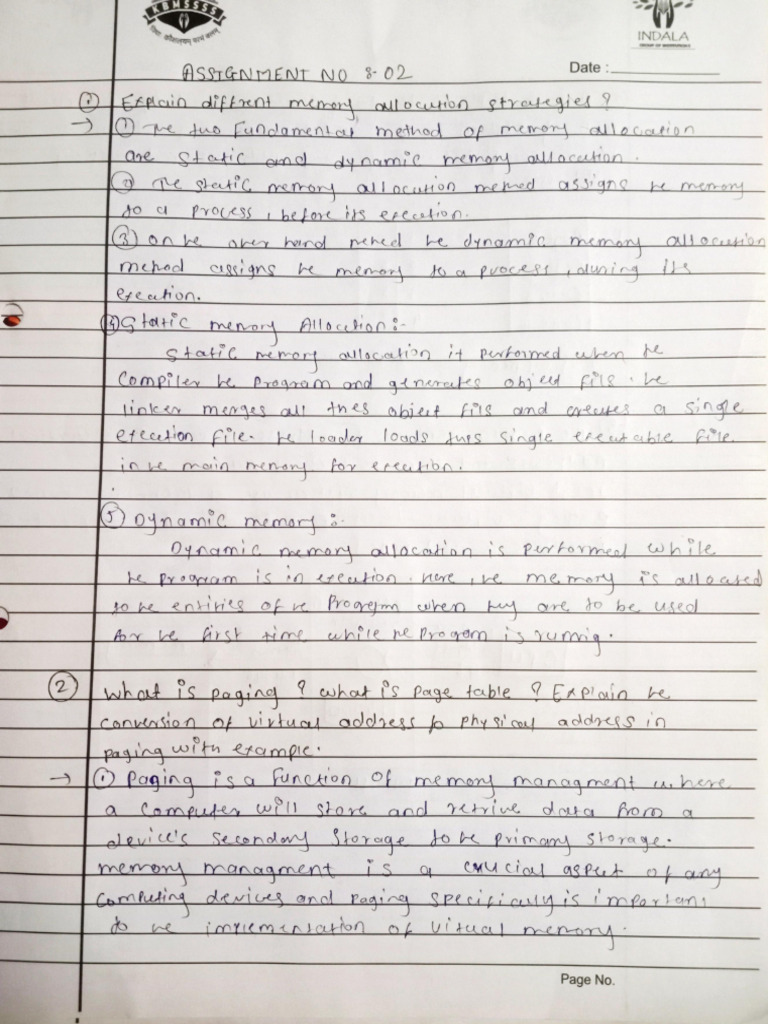 KBHSSSS
INDALA
GROUP OF INSTITUTIONS
Date :
ASSIGNMENT NO 8-02
① Explain diffrent memory allocution strategies ?
→ ① The two Fundamental method of memory allocation
are static and dynamic memory allocution.
② The static memory allocution method assigns he memory
to a process, before its execution.
③ on he over hand he dynamic memory allocution
method assigns he memory to a process, during its
execution.
④ Static memory Allocution :-
Static memory allocation it performed when he
Compiler he program and generates object fils. he
linker merges all thes object fils and creates a single
execution file. he loader loads this single executable file
in he main memory for execution.
⑤ Dynamic memory :-
Dynamic memory allocation is performed while
he program is in execution. Here, he memory is allocated
to he entities of he Program when they are to be used
for he first time while he Program is runnig.
② What is paging ? what is page table ? Explain he
conversion of virtual address to physical address in
paging with example.
→ ① Paging is a function of memory managment where
a computer will store and retrive data from a
device's secondary storage to he primary storage.
memory managment is a crucial aspect of any
computing devices and paging specifically is important
to he implementation of virtual memory.
Page No.